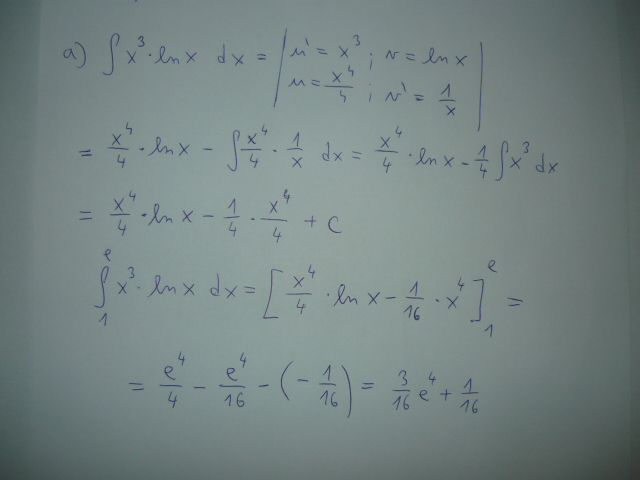 a) ∫ x³·ln x dx = | u' = x³ ; v = ln x
u = x⁴/4 ; v' = 1/x |
= x⁴/4 · ln x − ∫ x⁴/4 · 1/x dx = x⁴/4 · ln x − 1/4 ∫ x³ dx
= x⁴/4 · ln x − 1/4 · x⁴/4 + C
∫₁ᵉ x³ · ln x dx = [ x⁴/4 · ln x − 1/16 · x⁴ ]₁ᵉ =
= e⁴/4 − e⁴/16 − (− 1/16) = 3/16 e⁴ + 1/16